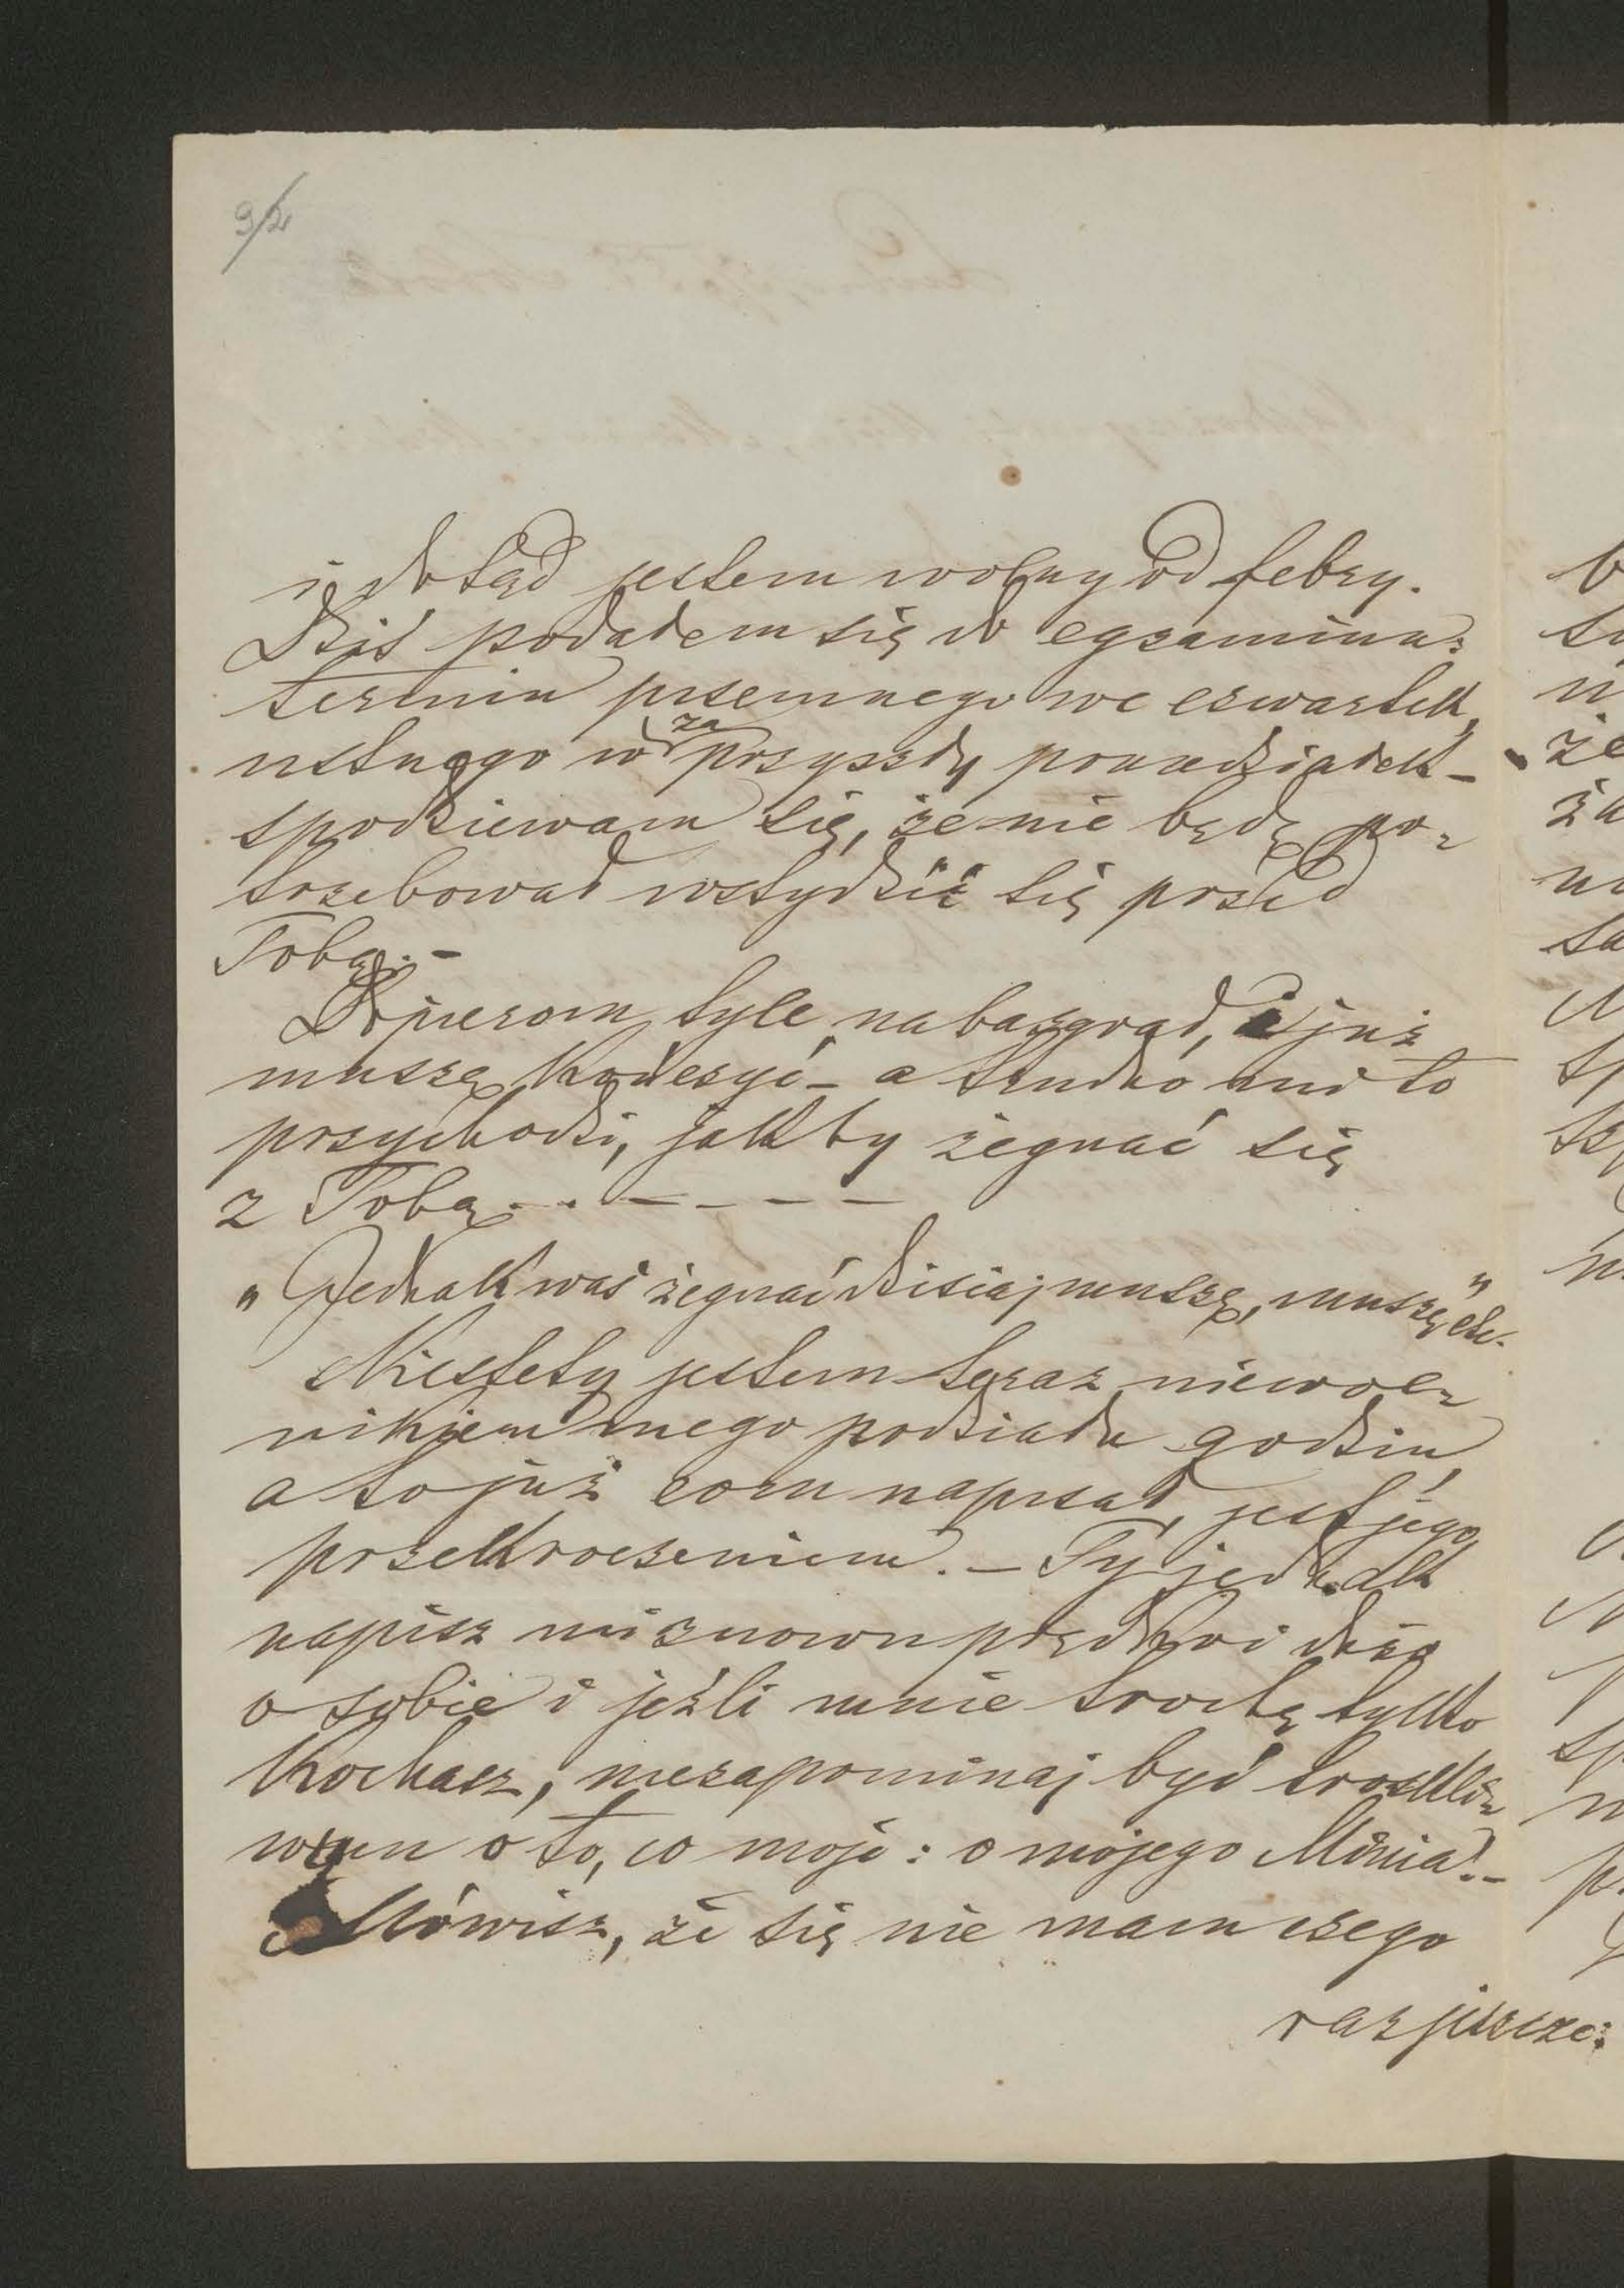 9/2
i dotąd jestem wolny od febry.
Dziś podałem się do egzaminu:
termin piśemnego we czwartek,
ustnego w za przyszły poniedziałek –
spodziewam się, że nie będę po=
trzebował wstydzić się przed
Tobą. –
Dopierom tyle nabazgrał, i już
muszę kończyć – a trudno mi to
przychodzi, jakby żegnać się
z Tobą . . – – – –
„Jednak was żegnać dzisiaj muszę, muszę" etc.
Niestety jestem teraz niewol=
nikiem mego podziału godzin,
a to już com napisał, jest jego
przekroczeniem. – Ty jednak
napisz mi znowu prędko i dużo
o sobie i jeźli mnie trochę tylko
kochasz, niezapominaj być troskli=
wym o to, co moje: o mojego Minia! –
Mówisz, że się nie mam czego
raz jeszcze: